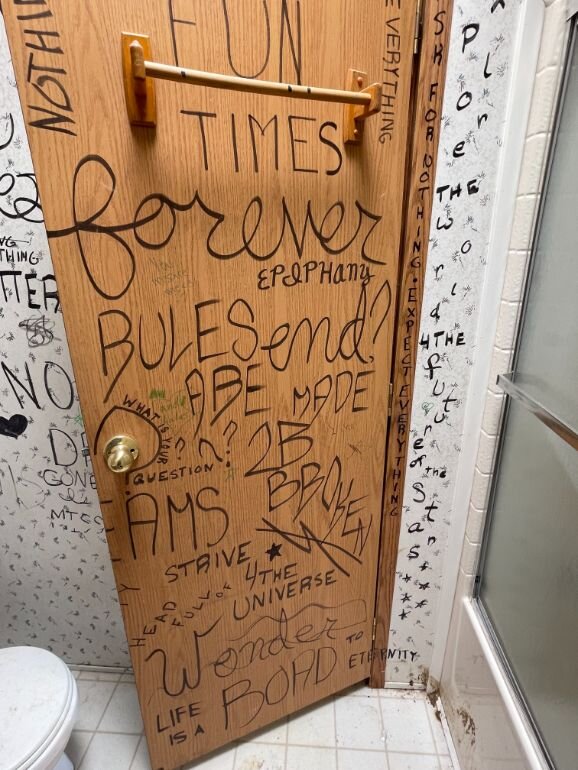 NOTHIN
FUN
EVERYTHING
TIMES
forever
EPIPHANY
RULES end?
ARE MADE
WHAT IS YOUR
QUESTION
2B
BROKEN
AMS
STRIVE ★
4 THE
UNIVERSE
HEAD
FULL OF
Wonder
TO
ETERNITY
LIFE
IS A
ROAD
SK FOR NOTHING • EXPECT EVERYTHING
Explore
THE
World
4 THE
future
of
the
Stars
THING
TTER
NO
GONE